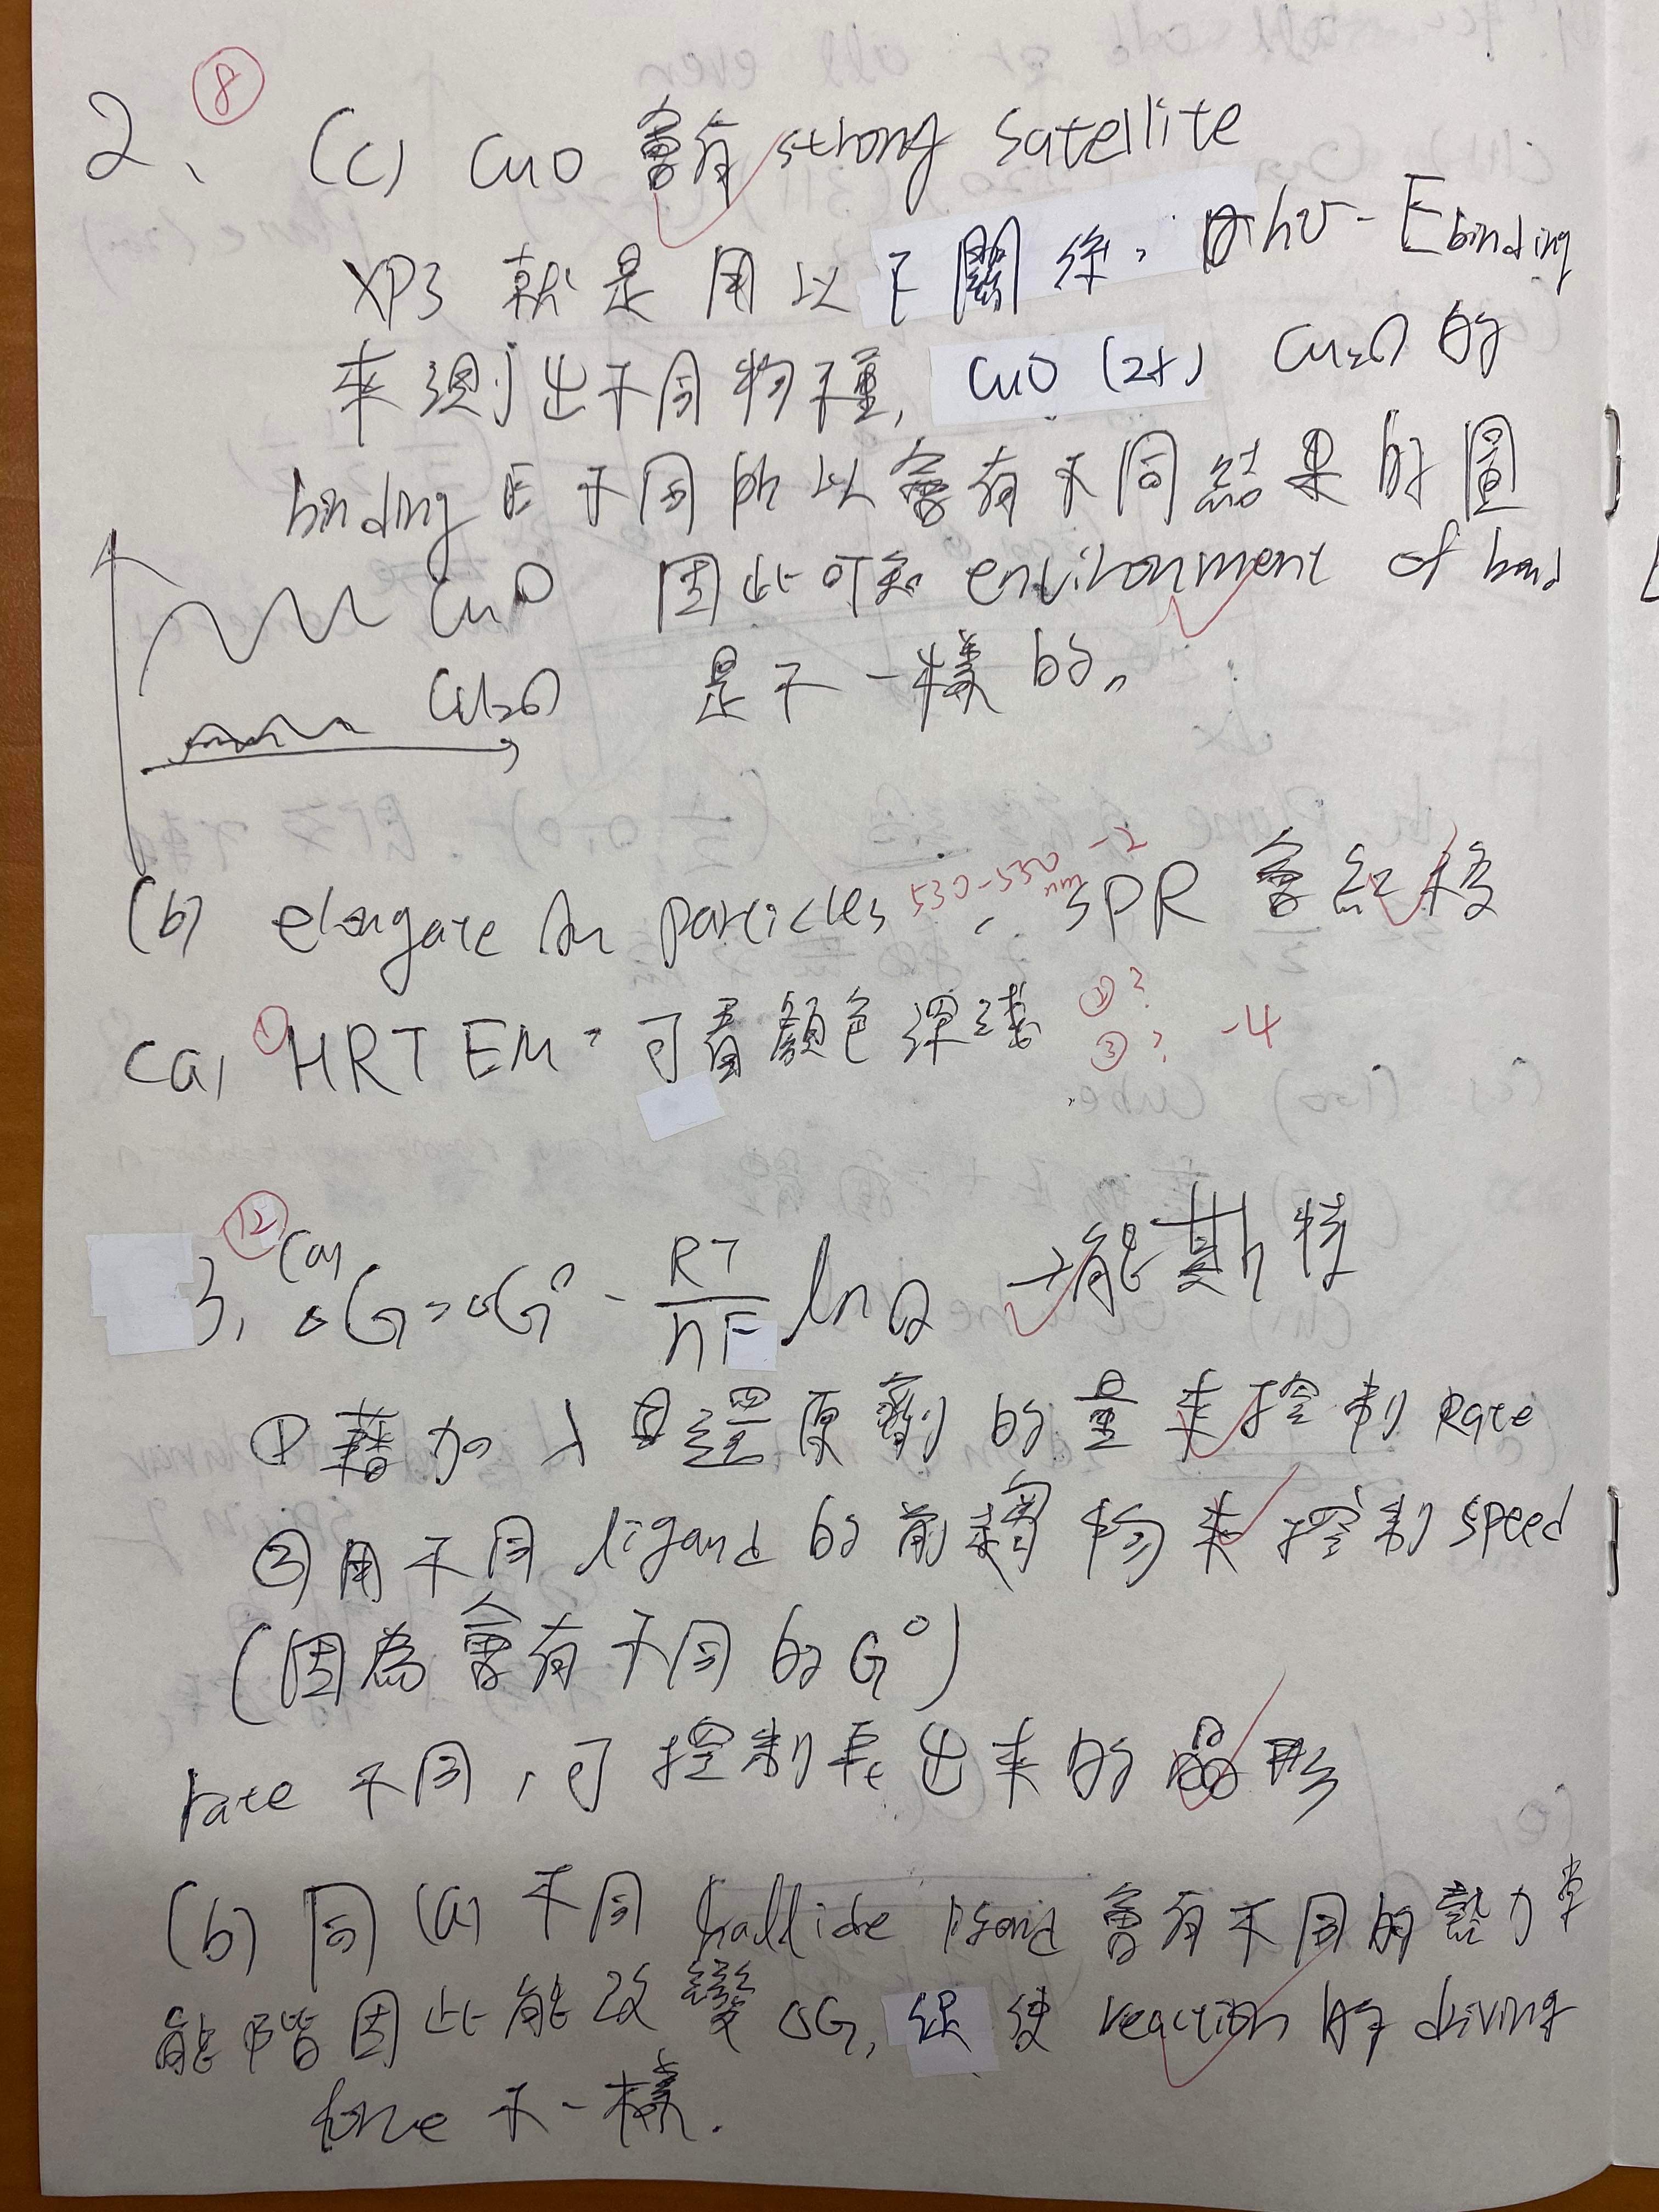 ⑧
2、 (c) CuO 會有 strong satellite
XPS 就是用以下關係, hν - Ebinding
來測出不同物種, CuO (2+) Cu2O 的
binding E 不同所以會有不同結果的圖
CuO 因此可知 environment of bond
Cu2O 是不一樣的。
530-550 nm -2
(b) elongate Au particles, SPR 會紅移
(a) ① HRTEM, 可看顏色深淺 ②? ③? -4
⑫
3, (a) ΔG = ΔG° - RT/nF ln Q 能斯特
① 藉加入還原劑的量來控制 Rate
② 用不同 ligand 的前趨物來控制 speed
(因為會有不同的 G°)
rate 不同, 可控制長出來的晶形
(b) 同 (a) 不同 hallide ligand 會有不同的熱力學
能階因此能改變 ΔG, 使 reaction 的 driving
force 不一樣.